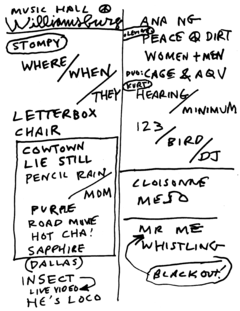 MUSIC HALL @
Williamsburg
STOMPY
WHERE/
WHEN/
THEY
LETTERBOX
CHAIR
COWTOWN
LIE STILL
PENCIL RAIN/
MDM
PURPLE
ROAD MOVIE
HOT CHA!
SAPPHIRE
DALLAS
INSECT
LIVE VIDEO
HE'S LOCO
ANA NG
PEACE & DIRT
WOMEN + MEN
DUO: CAGE & AQV
KURT
HEARING/
MINIMUM
123/
BIRD/
DJ
CLOISONNE
MESO
MR ME
WHISTLING
BLACKOUT